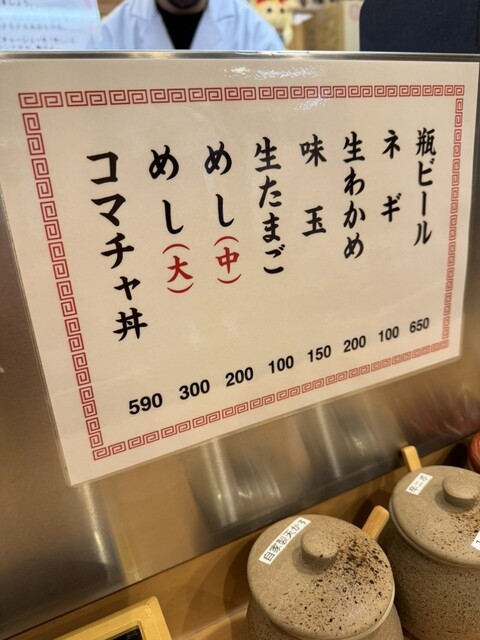 瓶ビール 650
ネギ 100
生わかめ 200
味玉 150
生たまご 100
めし(中) 200
めし(大) 300
コマチャ丼 590
自家製天かす